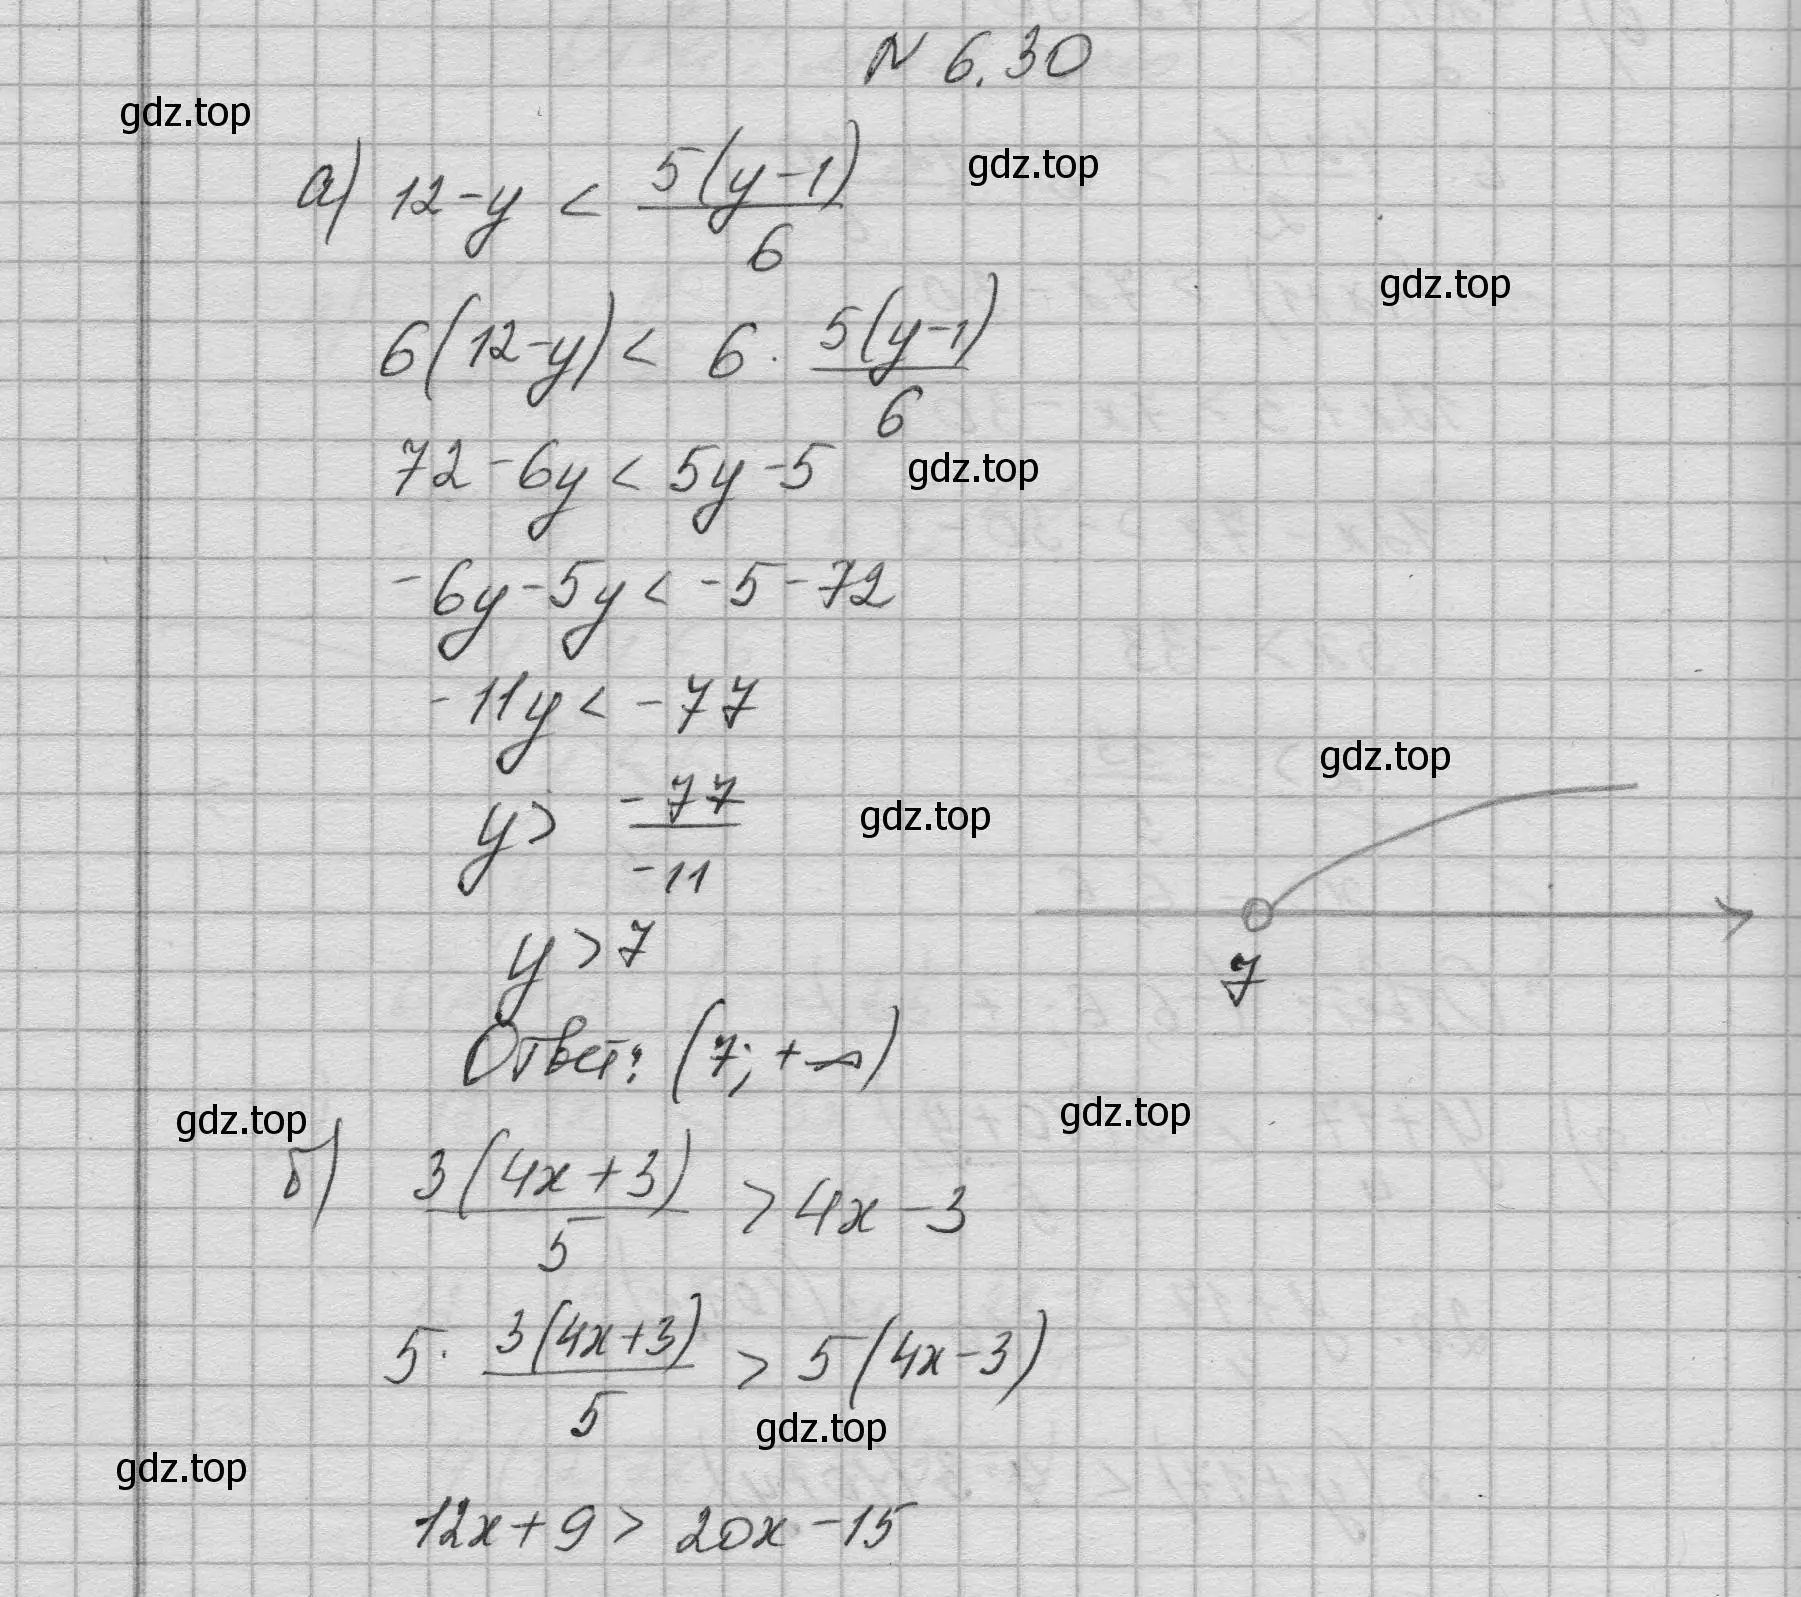 N 6.30
gdz.top
а) 12-y < 5(y-1)/6
gdz.top
gdz.top
6(12-y) < 6 · 5(y-1)/6
72-6y < 5y-5
gdz.top
-6y-5y < -5-72
-11y < -77
gdz.top
y > -77/-11
gdz.top
y > 7
7
Ответ: (7; +∞)
gdz.top
gdz.top
б) 3(4x+3)/5 > 4x-3
5 · 3(4x+3)/5 > 5(4x-3)
gdz.top
gdz.top
12x+9 > 20x-15